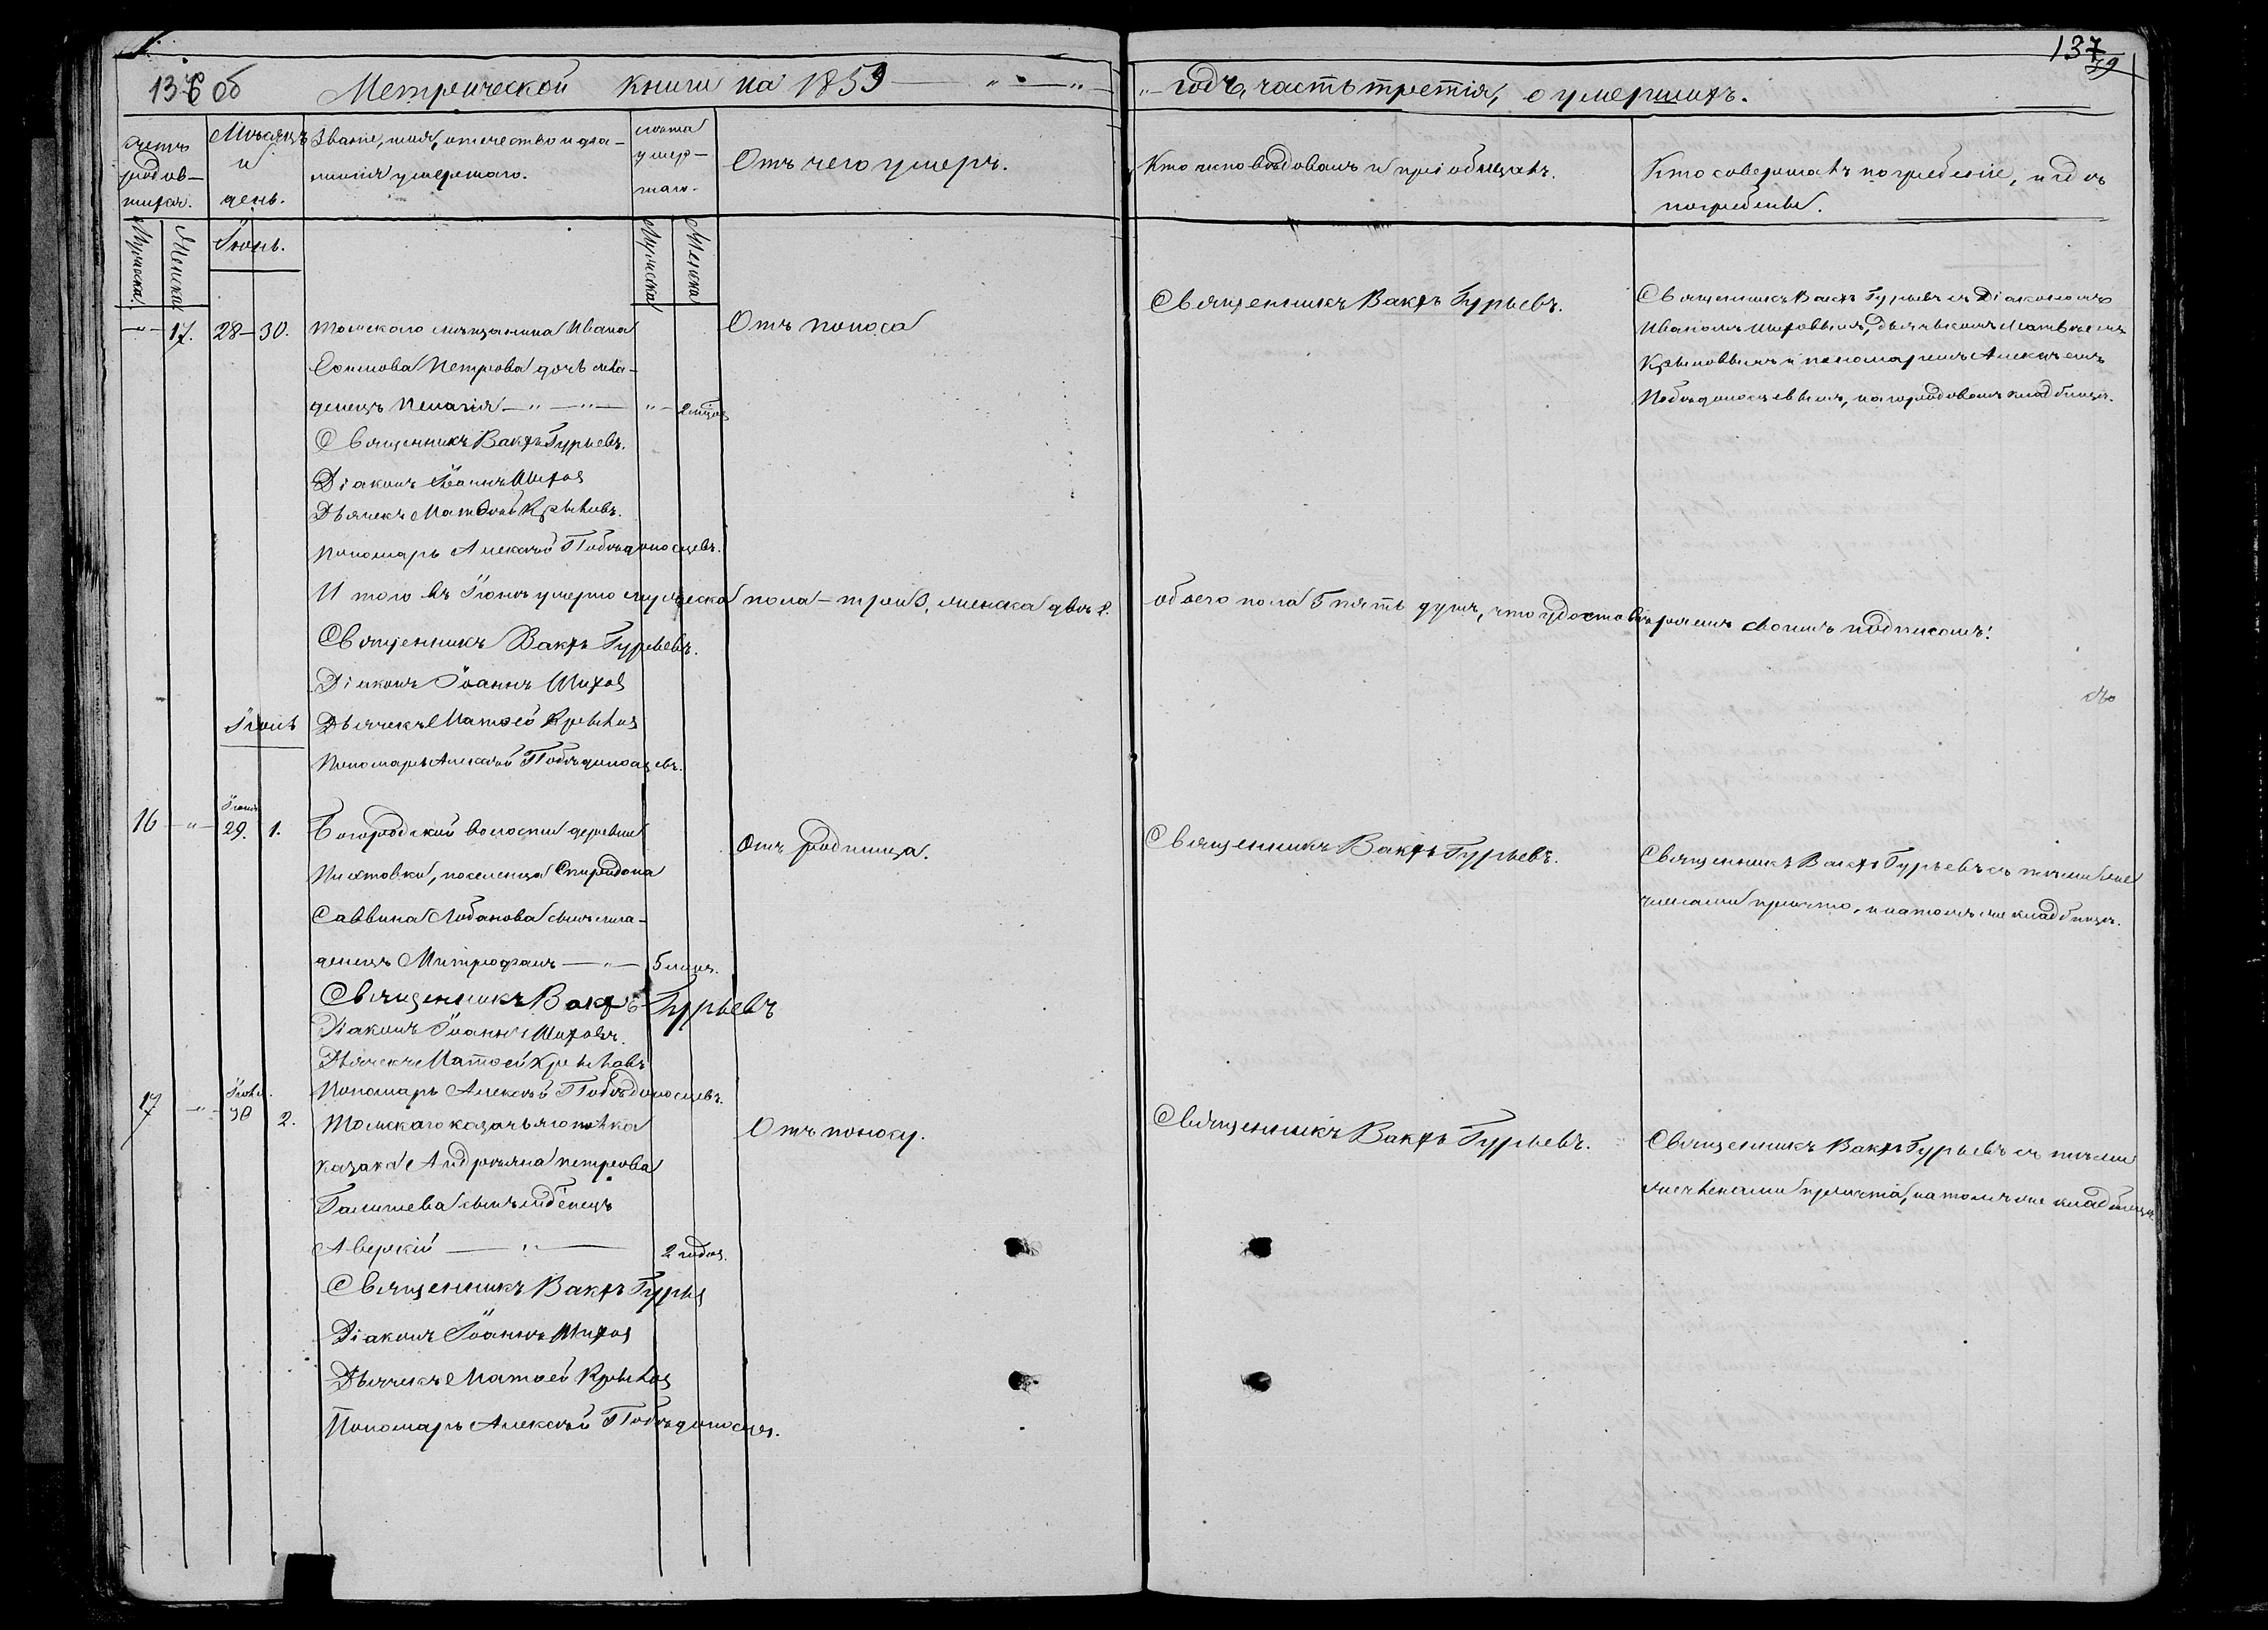 136 об
Метрической книги на 1859
годъ, часть третія, о умершихъ.
137
Счетъ родив-
шихся.
Мѣсяцъ и день.
Званіе, имя, отечество и фа-
милія умершаго.
Лѣта умер-
шаго.
Отъ чего умеръ.
Кто исповѣдовалъ и пріобщалъ.
Кто совершалъ погребеніе, и гдѣ
погребены.
Мужеска Женска
Іюнь.
Мужеска Женска
17. 28 – 30. Томскаго мѣщанина Ивана
Петрова дочь мла-
денецъ Пелагія
Отъ поноса
Священникъ Вакхъ Гурьевъ.
Священникъ Вакхъ Гурьевъ съ Діакономъ
Иваномъ Шиховымъ, дьячкомъ Матвѣемъ
Крыловымъ и пономаремъ Алексѣемъ
Побѣдоносцевымъ, на городовомъ кладбищѣ.
Священникъ Вакхъ Гурьевъ.
Діаконъ Іоаннъ Шихов
Дьячекъ Матѳей Крыловъ.
Пономарь Алексѣй Побѣдоносцевъ.
И того въ Іюнѣ умерло мужеска пола – три 3, женска двѣ 2.
обоего пола 5 пять душъ, что удостовѣряемъ своимъ подписомъ.
Священникъ Вакхъ Гурьевъ.
Діаконъ Іоаннъ Шихов
Іюль
Дьячекъ Матѳей Крылов
Пономарь Алексѣй Побѣдоносцевъ.
16 Іюня 29. 1. Богородской волости деревни
поселенца Спиридона
Саввина Лобанова сынъ мла-
денецъ Митрофанъ 5 мѣсяц.
Отъ родимца.
Священникъ Вакхъ Гурьевъ.
Священникъ Вакхъ Гурьевъ съ тѣми же
членами причта, на томъ же кладбищѣ.
Священникъ Вакхъ Гурьевъ
Діаконъ Іоаннъ Шиховъ.
Дьячекъ Матѳей Крыловъ
Пономарь Алексѣй Побѣдоносцевъ.
17 Іюня 30 2. Томскаго казачьяго полка
казака Андреяна Петрова
сынъ младенецъ
Аверкій 2 годов.
Отъ поносу.
Священникъ Вакхъ Гурьевъ.
Священникъ Вакхъ Гурьевъ съ тѣми
же членами причта, на томъ же кладбищѣ.
Священникъ Вакхъ Гурьев
Діаконъ Іоаннъ Шихов
Дьячекъ Матѳей Крылов
Пономарь Алексѣй Побѣдоносцев.